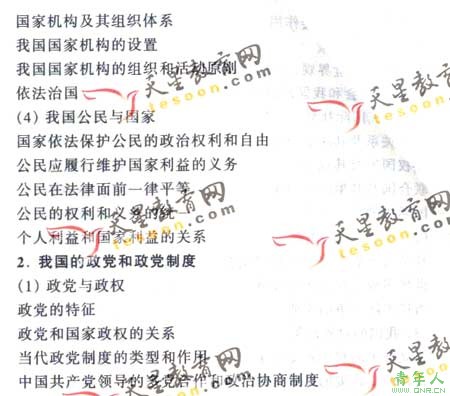 国家机构及其组织体系
我国国家机构的设置
我国国家机构的组织和活动原则
依法治国
(4) 我国公民与国家
国家依法保护公民的政治权利和自由
公民应履行维护国家利益的义务
公民在法律面前一律平等
公民的权利和义务的统一
个人利益和国家利益的关系
2. 我国的政党和政党制度
(1) 政党与政权
政党的特征
政党和国家政权的关系
当代政党制度的类型和作用
中国共产党领导的多党合作和政治协商制度
天星教育网
tesoon.com
天星教育网
tesoon.com
天星教育网
tesoon.com
天星教育网
tesoon.com
天星教育网
tesoon.com
天星教育网
青年人
www.QNR.CN